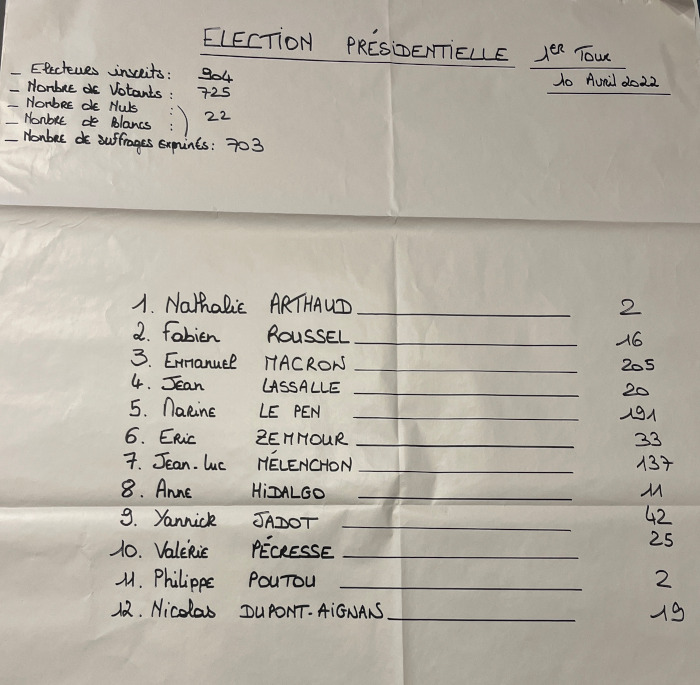 ELECTION PRÉSIDENTIELLE 1ER TOUR
10 Avril 2022
- Electeurs inscrits : 904
- Nombre de Votants : 725
- Nombre de Nuls :
- Nombre de Blancs : ) 22
- Nombre de suffrages exprimés : 703
1. Nathalie ARTHAUD 2
2. Fabien ROUSSEL 16
3. Emmanuel MACRON 205
4. Jean LASSALLE 20
5. Marine LE PEN 191
6. Eric ZEMMOUR 33
7. Jean-Luc MÉLENCHON 137
8. Anne HIDALGO 11
9. Yannick JADOT 42
10. Valérie PÉCRESSE 25
11. Philippe POUTOU 2
12. Nicolas DUPONT-AIGNAN 19